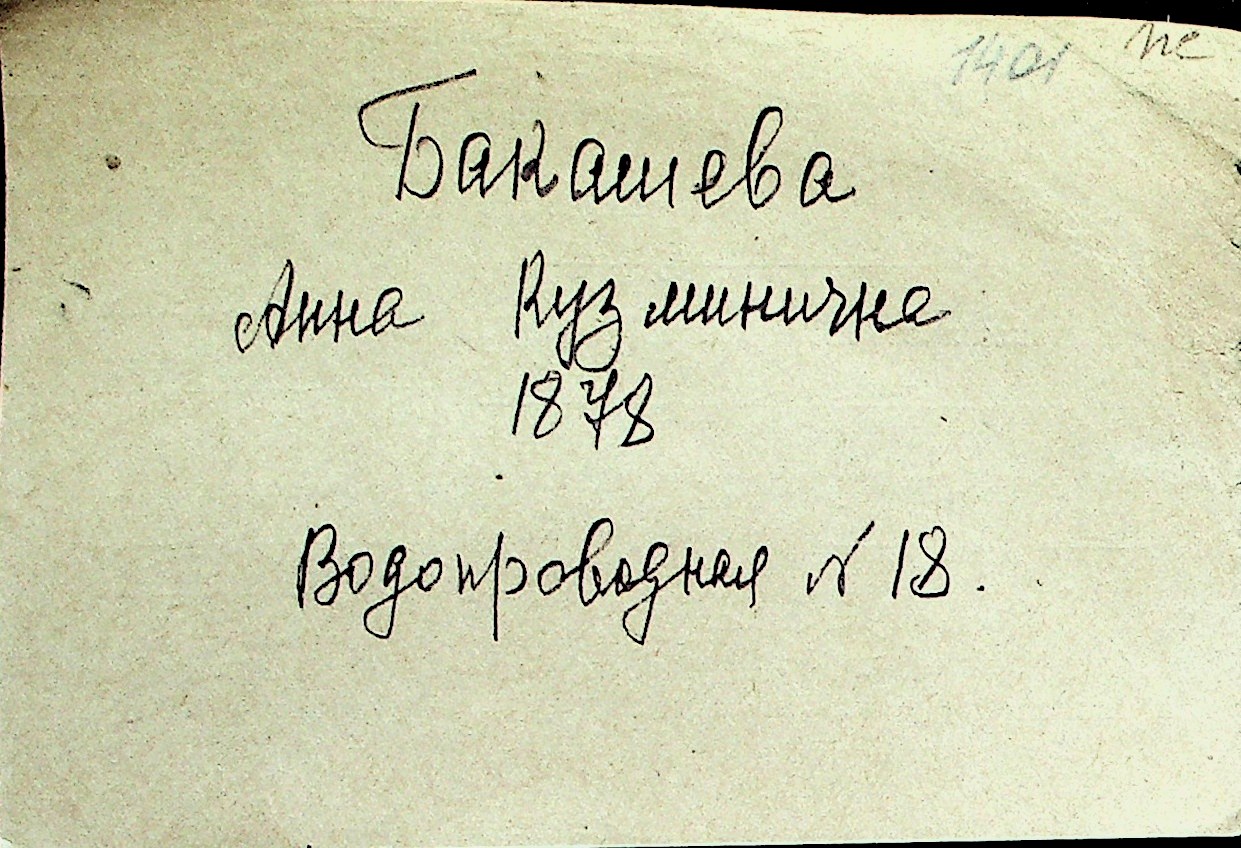 1401 пе
Бакашева
Анна Кузминична
1878
Водопроводная № 18.